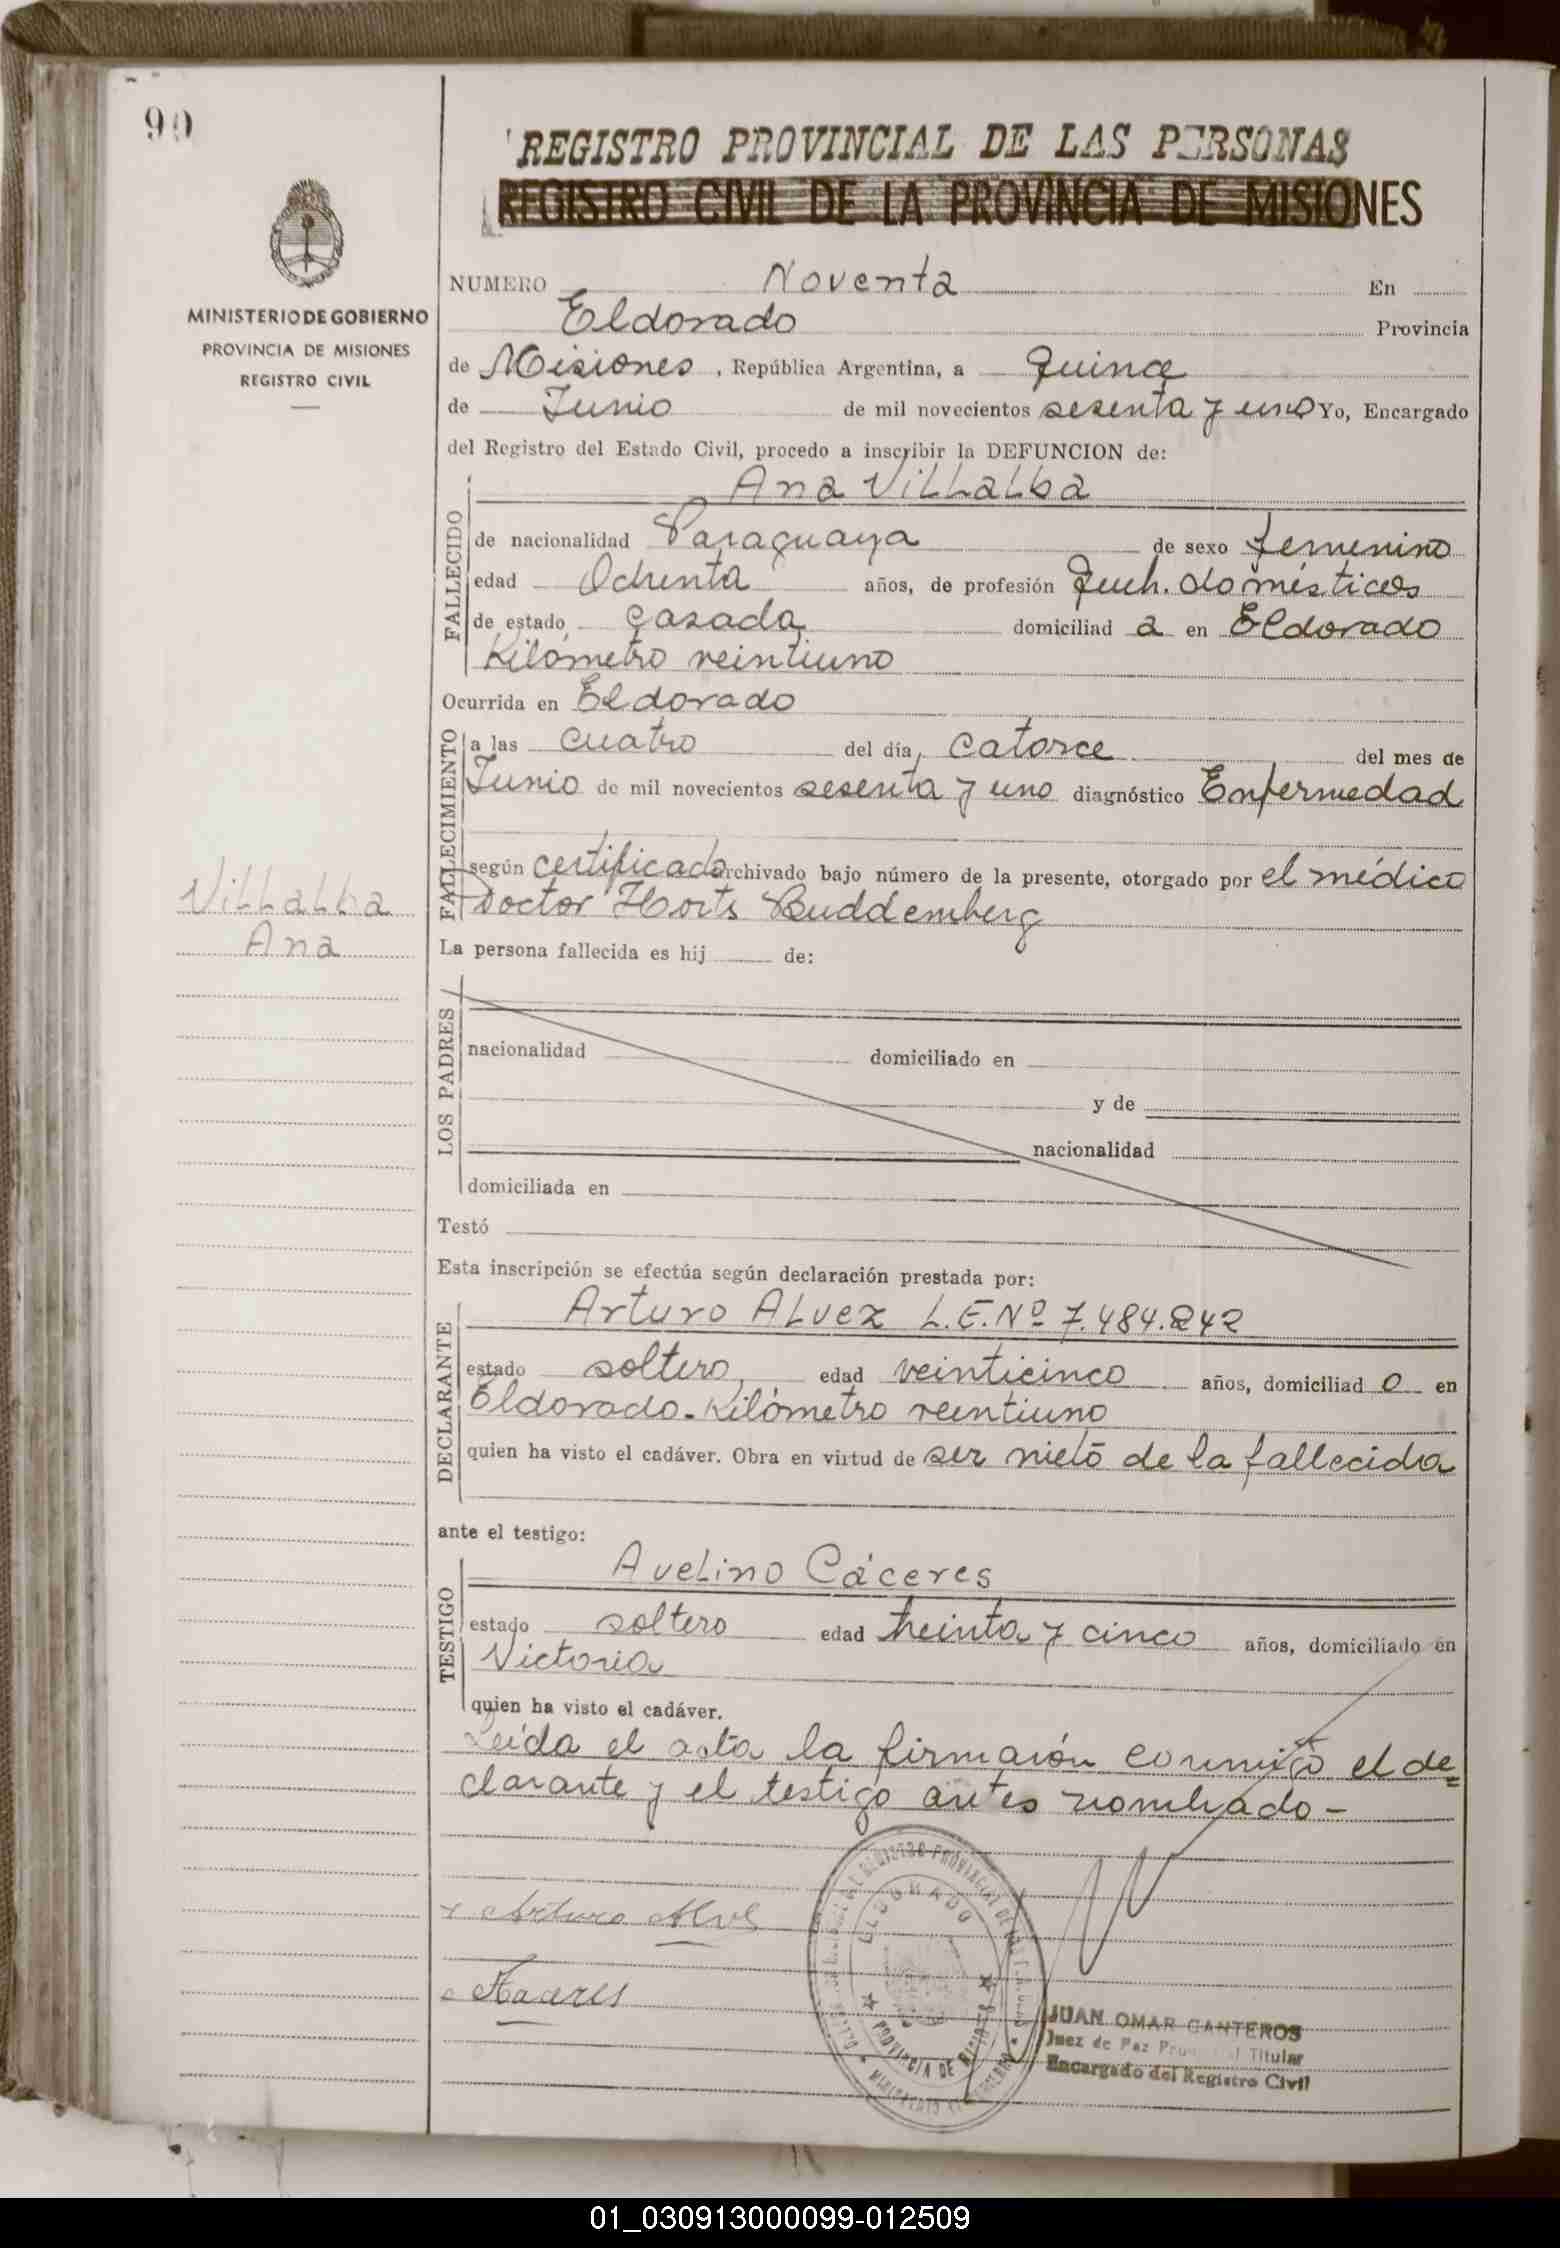 90
REGISTRO PROVINCIAL DE LAS PERSONAS
REGISTRO CIVIL DE LA PROVINCIA DE MISIONES
MINISTERIO DE GOBIERNO
PROVINCIA DE MISIONES
REGISTRO CIVIL
NUMERO Noventa En
Eldorado Provincia
de Misiones, República Argentina, a Quince
de Junio de mil novecientos sesenta y uno Yo, Encargado
del Registro del Estado Civil, procedo a inscribir la DEFUNCION de:
Ana Villalba
FALLECIDO
de nacionalidad Paraguaya de sexo femenino
edad Ochenta años, de profesión Queh. domésticos
de estado casada domiciliad a en Eldorado
Kilómetro veintiuno
Ocurrida en Eldorado
FALLECIMIENTO
a las cuatro del día, catorce del mes de
Junio de mil novecientos sesenta y uno diagnóstico Enfermedad
según certificado archivado bajo número de la presente, otorgado por el médico
Doctor Horts Buddemberg
Villalba
Ana
La persona fallecida es hij de:
LOS PADRES
nacionalidad domiciliado en
y de
nacionalidad
domiciliada en
Testó
Esta inscripción se efectúa según declaración prestada por:
Arturo Alvez L.E.Nº 7.484.242
DECLARANTE
estado soltero, edad veinticinco años, domiciliad o en
Eldorado-Kilómetro veintiuno
quien ha visto el cadáver. Obra en virtud de ser nieto de la fallecida
ante el testigo:
Avelino Cáceres
TESTIGO
estado soltero edad treinta y cinco años, domiciliado en
Victoria
quien ha visto el cadáver.
Leída el acta la firmarón conmigo el de=
clarante y el testigo antes nombrado-
Arturo Alve
ELDORADO
PROVINCIA DE MISIONES
JUAN OMAR CANTEROS
Juez de Paz Titular
Encargado del Registro Civil
01_030913000099-012509